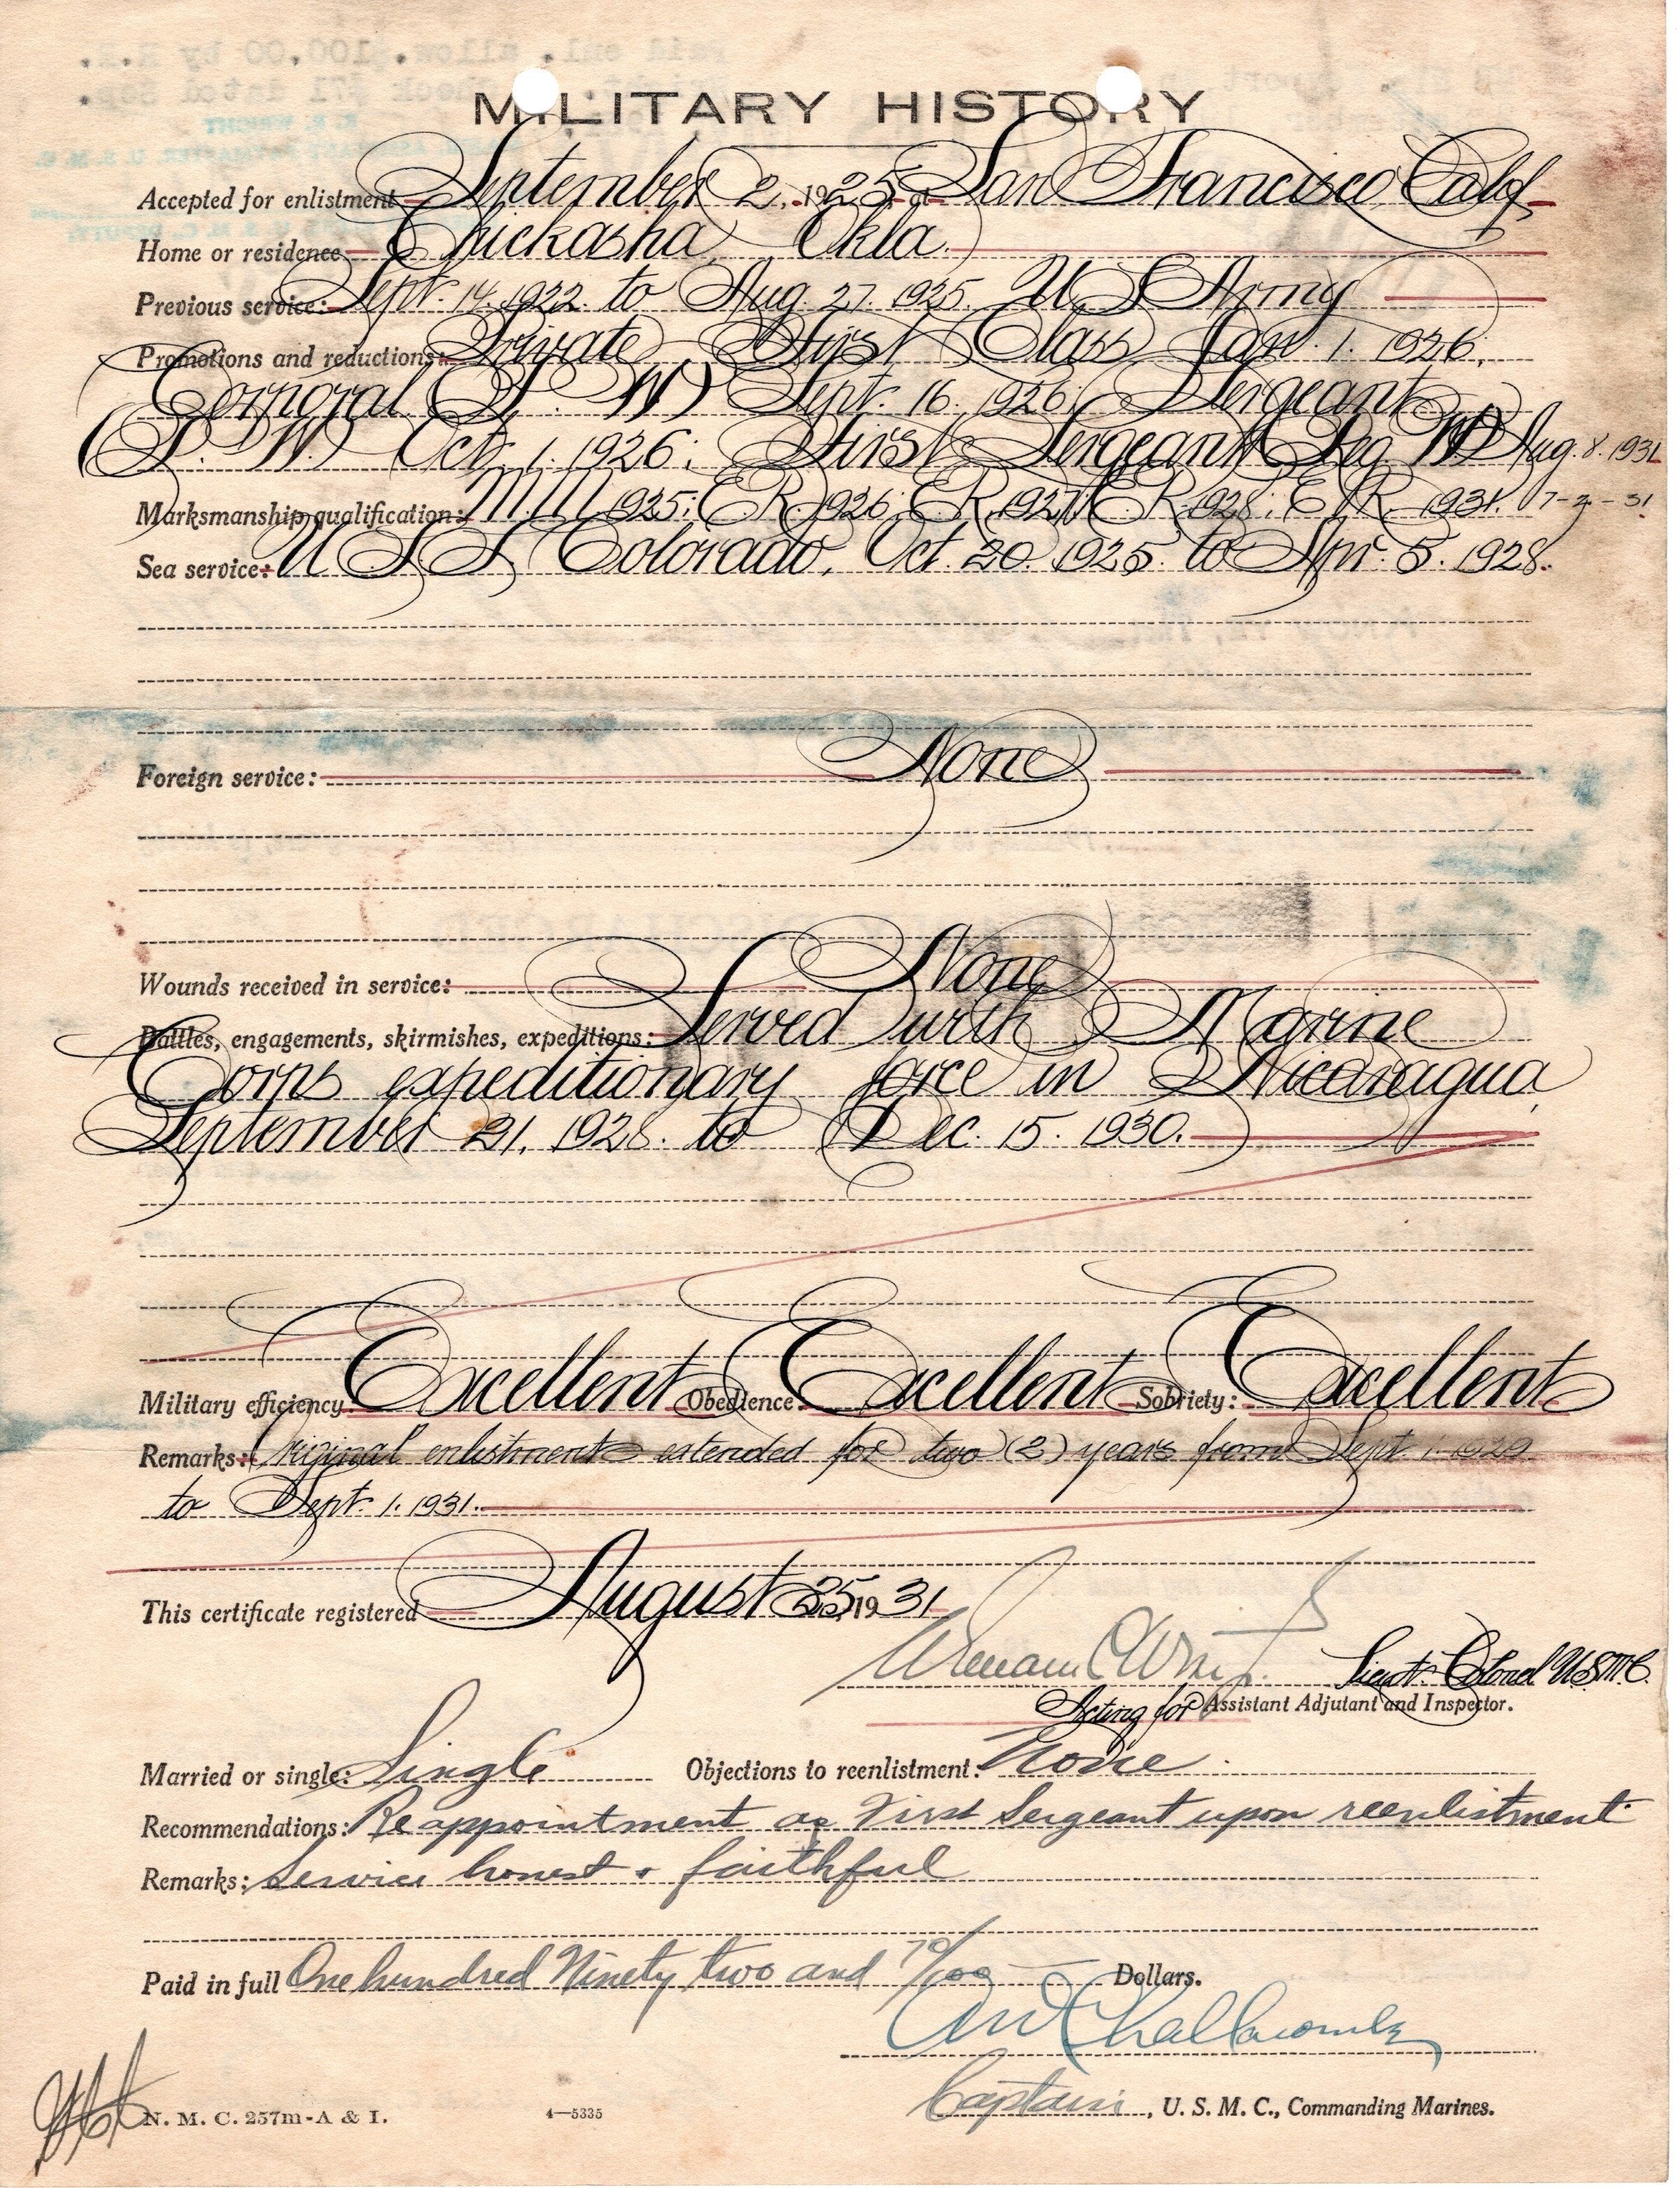 MILITARY HISTORY
Accepted for enlistment September 2, 1925, at San Francisco Calif
Home or residence Chickasha, Okla.
Previous service: Sept. 14. 1922. to Aug. 27. 1925. U.S. Army
Promotions and reductions: Private First Class Jan. 1. 1926;
Corporal (S. W.) Sept. 16. 1926; Sergeant
(S. W.) Oct. 1. 1926; First Sergeant Aug. 8. 1931
Marksmanship qualification: M.M. 1925; E.R. 1926; E.R. 1927; E.R. 1928; E.R. 1931. 7-2-31
Sea service: U S S Colorado, Oct. 20. 1925. to Apr. 5. 1928.
Foreign service: None
Wounds received in service: None
Battles, engagements, skirmishes, expeditions: Served with Marine
Corps expeditionary force in Nicaragua,
September 21, 1928. to Dec. 15. 1930.
Military efficiency: Excellent Obedience: Excellent Sobriety: Excellent
Remarks: Original enlistment extended for two (2) years from Sept. 1. 1929
to Sept. 1. 1931.
This certificate registered August 25, 1931
Lieut. Colonel U.S.M.C.
Acting for Assistant Adjutant and Inspector.
Married or single: Single Objections to reenlistment: None.
Recommendations: Reappointment as First Sergeant upon reenlistment
Remarks: Service honest & faithful
Paid in full One hundred Ninety two and 70/100 Dollars.
Captain, U. S. M. C., Commanding Marines.
N. M. C. 257m-A & I. 4—5335